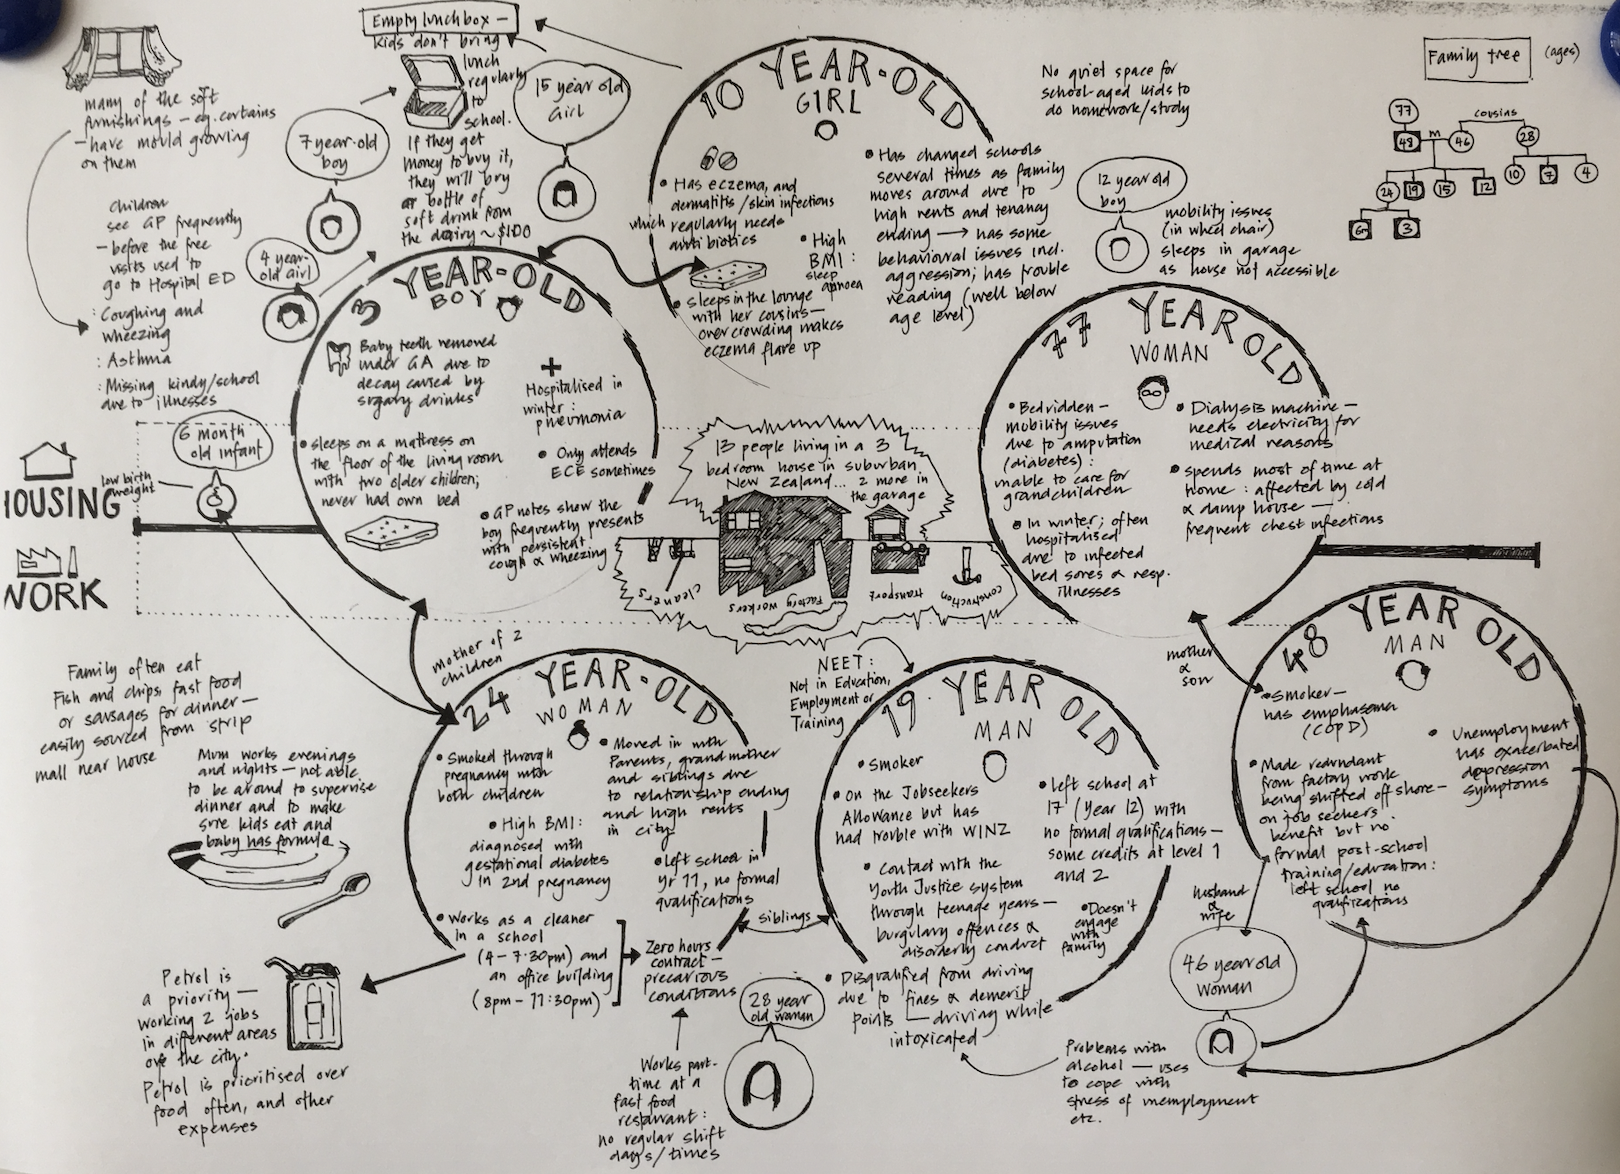 many of the soft
furnishings – eg. curtains
– have mould growing
on them
Children
see GP frequently
– before the free
visits used to
go to Hospital ED
: Coughing and
wheezing
: Asthma
: Missing kindy/school
due to illnesses
Empty lunchbox –
kids don't bring
lunch
regularly
to
school.
If they get
money to buy it,
they will buy
a bottle of
soft drink from
the dairy ~ $1.00
7 year-old
boy
15 year old
Girl
4 year-
old girl
10 YEAR-OLD
GIRL
• Has eczema, and
dermatitis / skin infections
which regularly needs
antibiotics
• High
BMI :
sleep
apnoea
• Sleeps in the lounge
with her cousins –
overcrowding makes
eczema flare up
• Has changed schools
several times as family
moves around due to
high rents and tenancy
ending → has some
behavioural issues incl.
aggression; has trouble
reading (well below
age level)
No quiet space for
school-aged kids to
do homework/study
12 year old
boy
mobility issues
(in wheel chair)
sleeps in garage
as house not accessible
Family tree (ages)
77
48 m 46
cousins
28
24 19 15 12
10 7 4
6m 3
3 YEAR-OLD
BOY
Baby teeth removed
under GA due to
decay caused by
sugary drinks
Hospitalised in
winter :
pneumonia
• Only attends
ECE sometimes
• sleeps on a mattress on
the floor of the living room
with two older children;
never had own bed
• GP notes show the
boy frequently presents
with persistent
cough & wheezing
6 month
old infant
low birth
weight
HOUSING
WORK
13 people living in a 3
bedroom house in suburban
New Zealand... 2 more in
the garage
cleaners
Factory workers
transport
construction
77 YEAR OLD
WOMAN
• Bedridden –
mobility issues
due to amputation
(diabetes) :
unable to care for
grandchildren
• In winter; often
hospitalised
due to infected
bed sores & resp.
illnesses
• Dialysis machine –
needs electricity for
medical reasons
• spends most of time at
home : affected by cold
& damp house –
frequent chest infections
mother
&
son
48 YEAR OLD
MAN
• Smoker –
has emphasema
(COPD)
• Made redundant
from factory work
being shifted offshore –
on job seekers
benefit but no
formal post-school
training/education :
left school no
qualifications
• Unemployment
has exacerbated
depression
symptoms
husband
&
wife
46 year old
woman
Problems with
alcohol — uses
to cope with
stress of unemployment
etc.
NEET :
Not in Education,
Employment or
Training
19 YEAR OLD
MAN
• Smoker
• On the Jobseekers
Allowance but has
had trouble with WINZ
• Contact with the
Youth Justice system
through teenage years –
burgulary offences &
disorderly conduct
• Disqualified from driving
due to fines & demerit
points – driving while
intoxicated
• left school at
17 (Year 12) with
no formal qualifications –
some credits at level 1
and 2
• Doesn't
engage
with
family
siblings
mother of 2
children
24 YEAR-OLD
WOMAN
• Smoked through
pregnancy with
both children
• High BMI :
diagnosed with
gestational diabetes
in 2nd pregnancy
• Moved in with
Parents, grandmother
and siblings due
to relationship ending
and high rents
in city
• left school in
Yr 11, no formal
qualifications
• Works as a cleaner
in a school
(4 – 7.30pm) and
an office building
(8pm – 11:30pm)
Zero hours
contract –
precarious
conditions
28 year
old woman
Works part-
time at a
fast food
restaurant :
no regular shift
days/times
Family often eat
Fish and chips, fast food
or sausages for dinner –
easily sourced from strip
mall near house
Mum works evenings
and nights – not able
to be around to supervise
dinner and to make
sure kids eat and
baby has formula
Petrol is
a priority –
working 2 jobs
in different areas
over the city.
Petrol is prioritised over
food often, and other
expenses